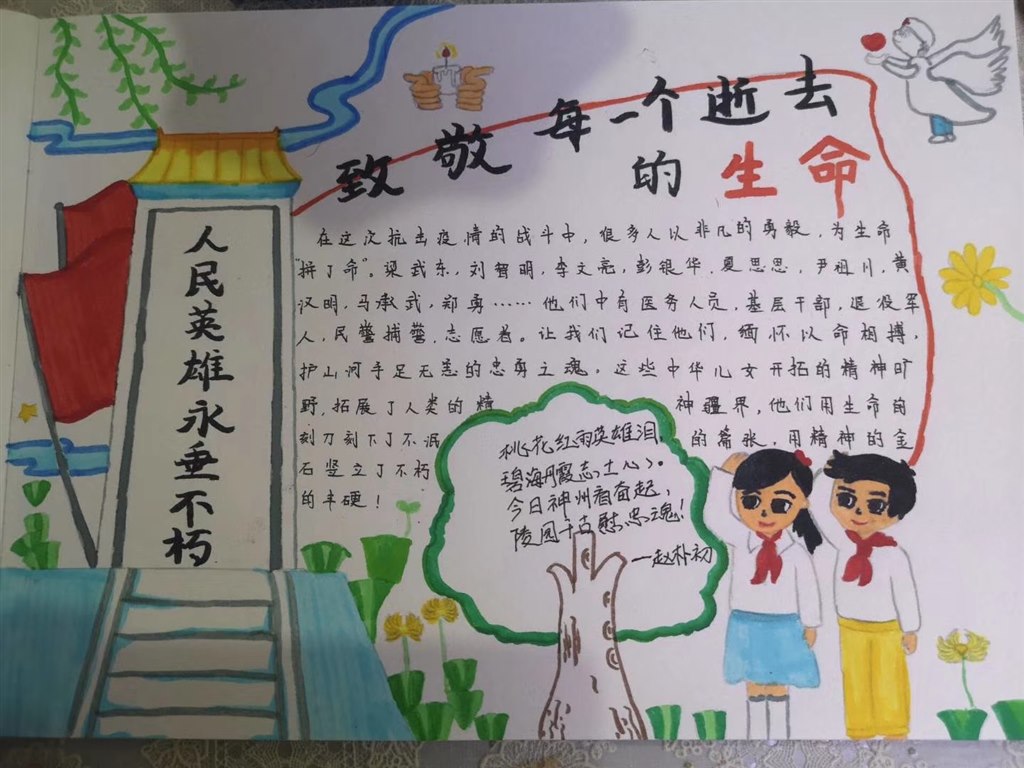 致敬每一个逝去
的生命
人民英雄永垂不朽
在这次抗击疫情的战斗中，很多人以非凡的勇毅，为生命
"拼了命"。梁武东，刘智明，李文亮，彭银华，夏思思，尹祖川，黄
汉明，马承武，郑勇……他们中有医务人员，基层干部，退役军
人，民警捕警，志愿者。让我们记住他们，缅怀以命相搏，
护山河手足无恙的忠勇之魂。这些中华儿女开拓的精神旷
野，拓展了人类的精 神疆界，他们用生命的
刻刀刻下了不泯 的篇张，用精神的金
石竖立了不朽
的丰硬！
桃花红雨英雄泪，
碧海丹霞志士心。
今日神州看奋起，
陵园千古慰忠魂！
—赵朴初